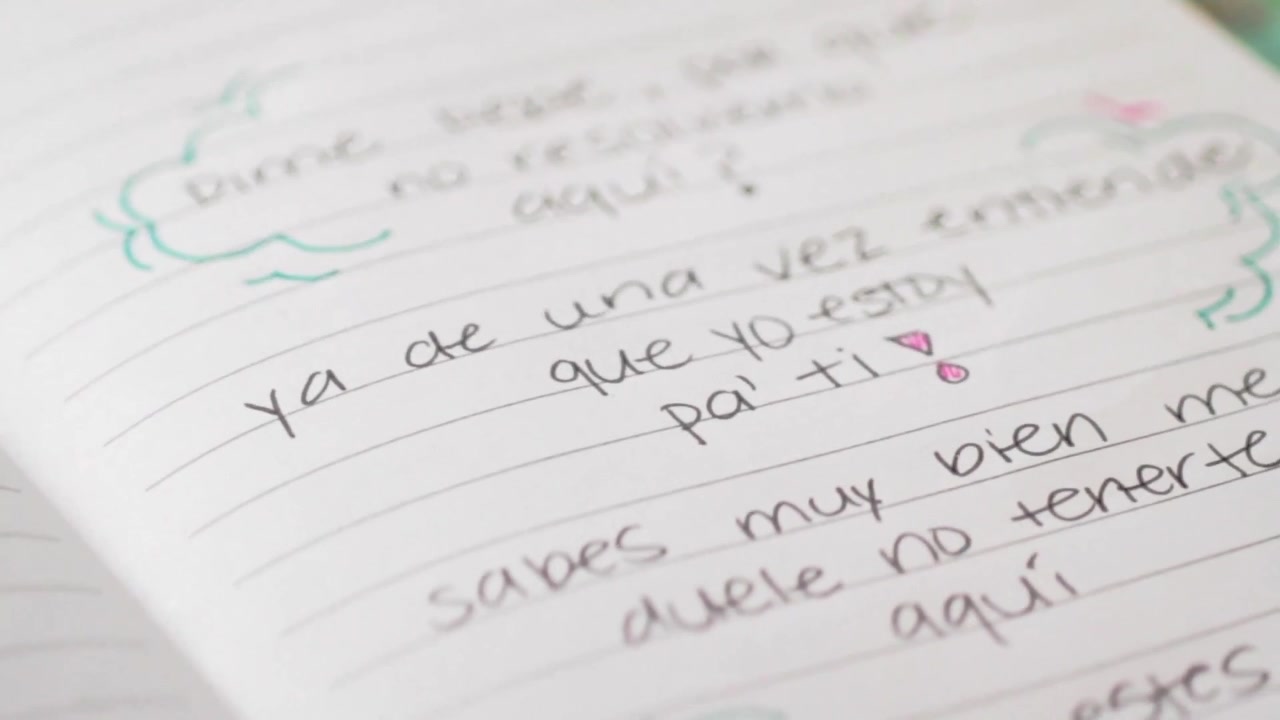 Dirme bebe, por qué
no resolvemos
aquí?
ya de una vez entiende
que yo estoy
pa' ti
sabes muy bien me
duele no tenerte
aquí